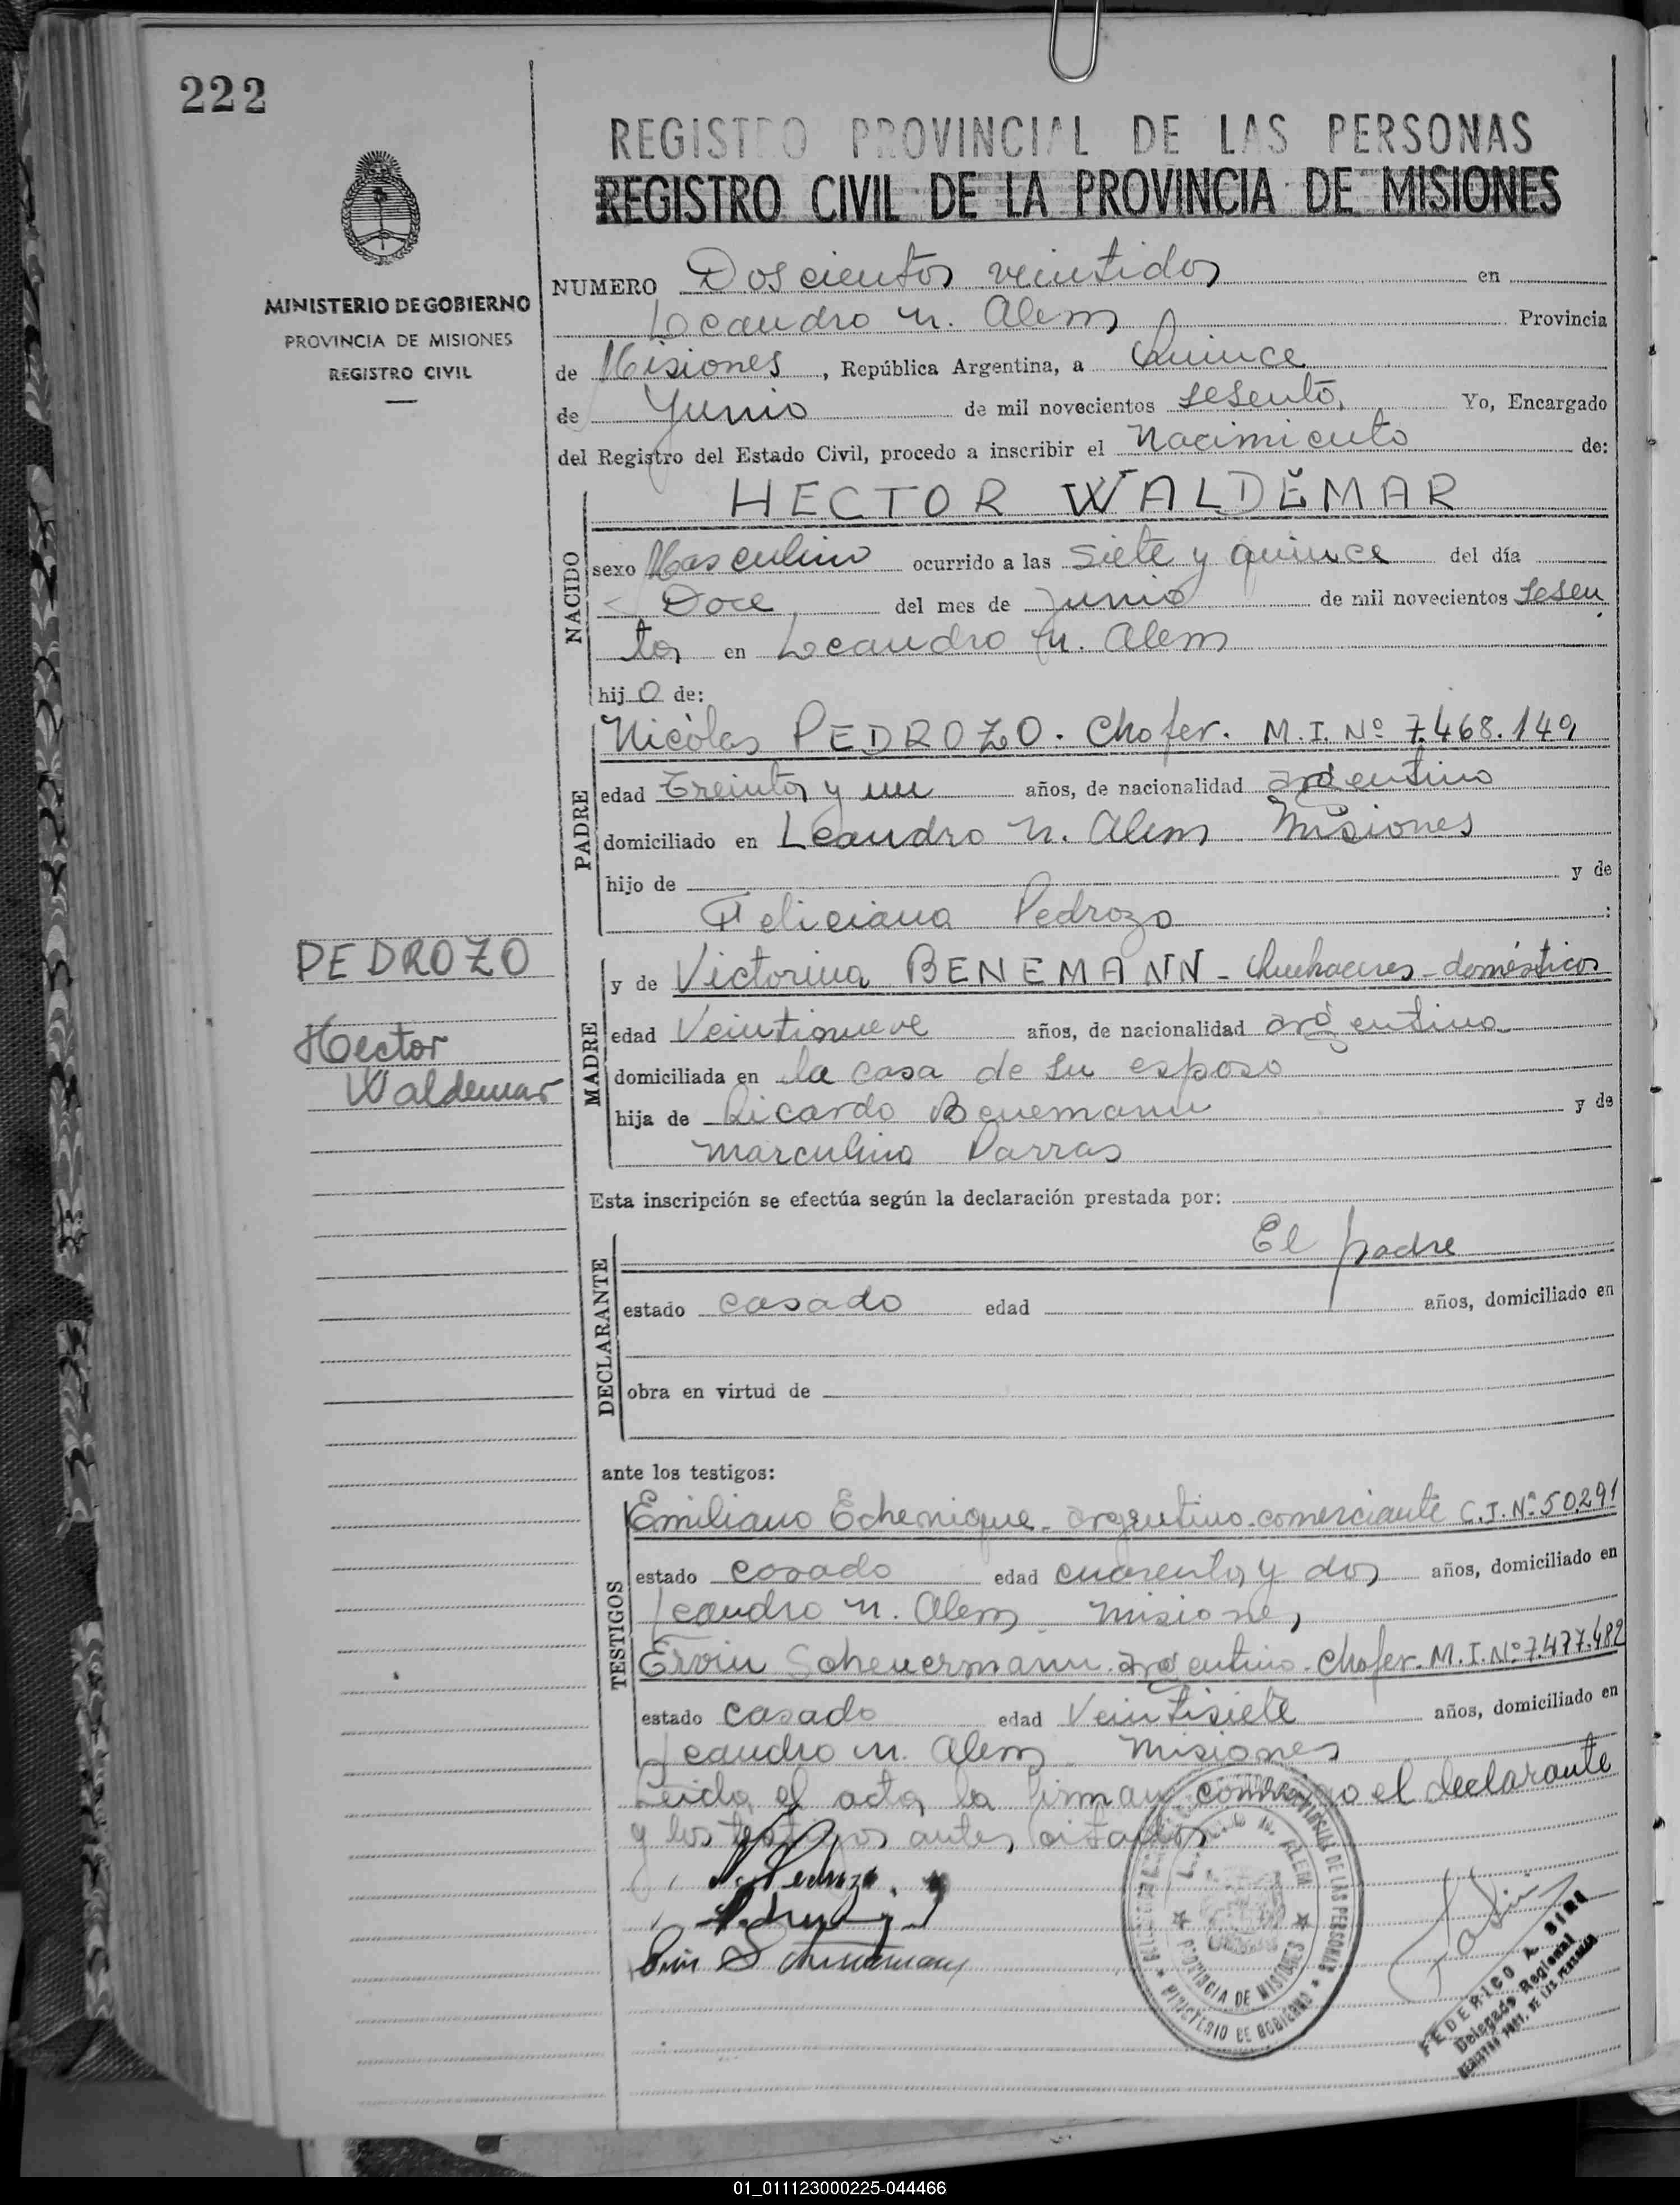 222
REGISTRO PROVINCIAL DE LAS PERSONAS
REGISTRO CIVIL DE LA PROVINCIA DE MISIONES
MINISTERIO DE GOBIERNO
PROVINCIA DE MISIONES
REGISTRO CIVIL
NUMERO Doscientos veintidos en
Leandro N. Alem Provincia
de Misiones, República Argentina, a Quince
de Junio de mil novecientos sesenta, Yo, Encargado
del Registro del Estado Civil, procedo a inscribir el Nacimiento de:
NACIDO
HECTOR WALDEMAR
sexo Masculino ocurrido a las siete y quince del día
Doce del mes de Junio de mil novecientos sesen
ta, en Leandro N. Alem
hijo de:
PADRE
Nicólas PEDROZO. Chofer. M.I. Nº 7.468.149
edad Treinta y un años, de nacionalidad argentino
domiciliado en Leandro N. Alem Misiones
hijo de y de
Feliciana Pedrozo :
PEDROZO
Hector
Waldemar
MADRE
y de Victorina BENEMANN - Quehaceres - domésticos
edad Veintinueve años, de nacionalidad argentina
domiciliada en la casa de su esposo
hija de Ricardo Benemann y de
Marculina Parras
Esta inscripción se efectúa según la declaración prestada por:
DECLARANTE
El padre
estado casado edad años, domiciliado en
obra en virtud de
ante los testigos:
TESTIGOS
Emiliano Echenique - argentino - comerciante C.I. Nº 50.291
estado casado edad cuarenta y dos años, domiciliado en
Leandro N. Alem - Misiones,
Ervin Scheuermann - argentino - Chofer - M.I. Nº 7.477.482
estado casado edad Veintisiete años, domiciliado en
Leandro N. Alem - Misiones
Leida el acta, la firman conmigo el declarante
y los testigos antes citados
N. Pedrozo
PROVINCIAL DE LAS PERSONAS
N. ALEM
PROVINCIA DE MISIONES
MINISTERIO DE GOBIERNO
FEDERICO A. SIRI
Delegado Regional
REGISTRO PROV. DE LAS PERSONAS
01_011123000225-044466